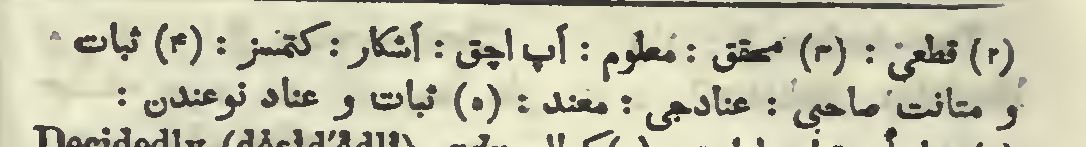 (٢) قطعی : (٣) محقق : معلوم : آپ اچق : آشکار : کتمسز : (۴) ثبات
و متانت صاحبی : عنادجی : معند : (٥) ثبات و عناد نوعندن :
Decidedly